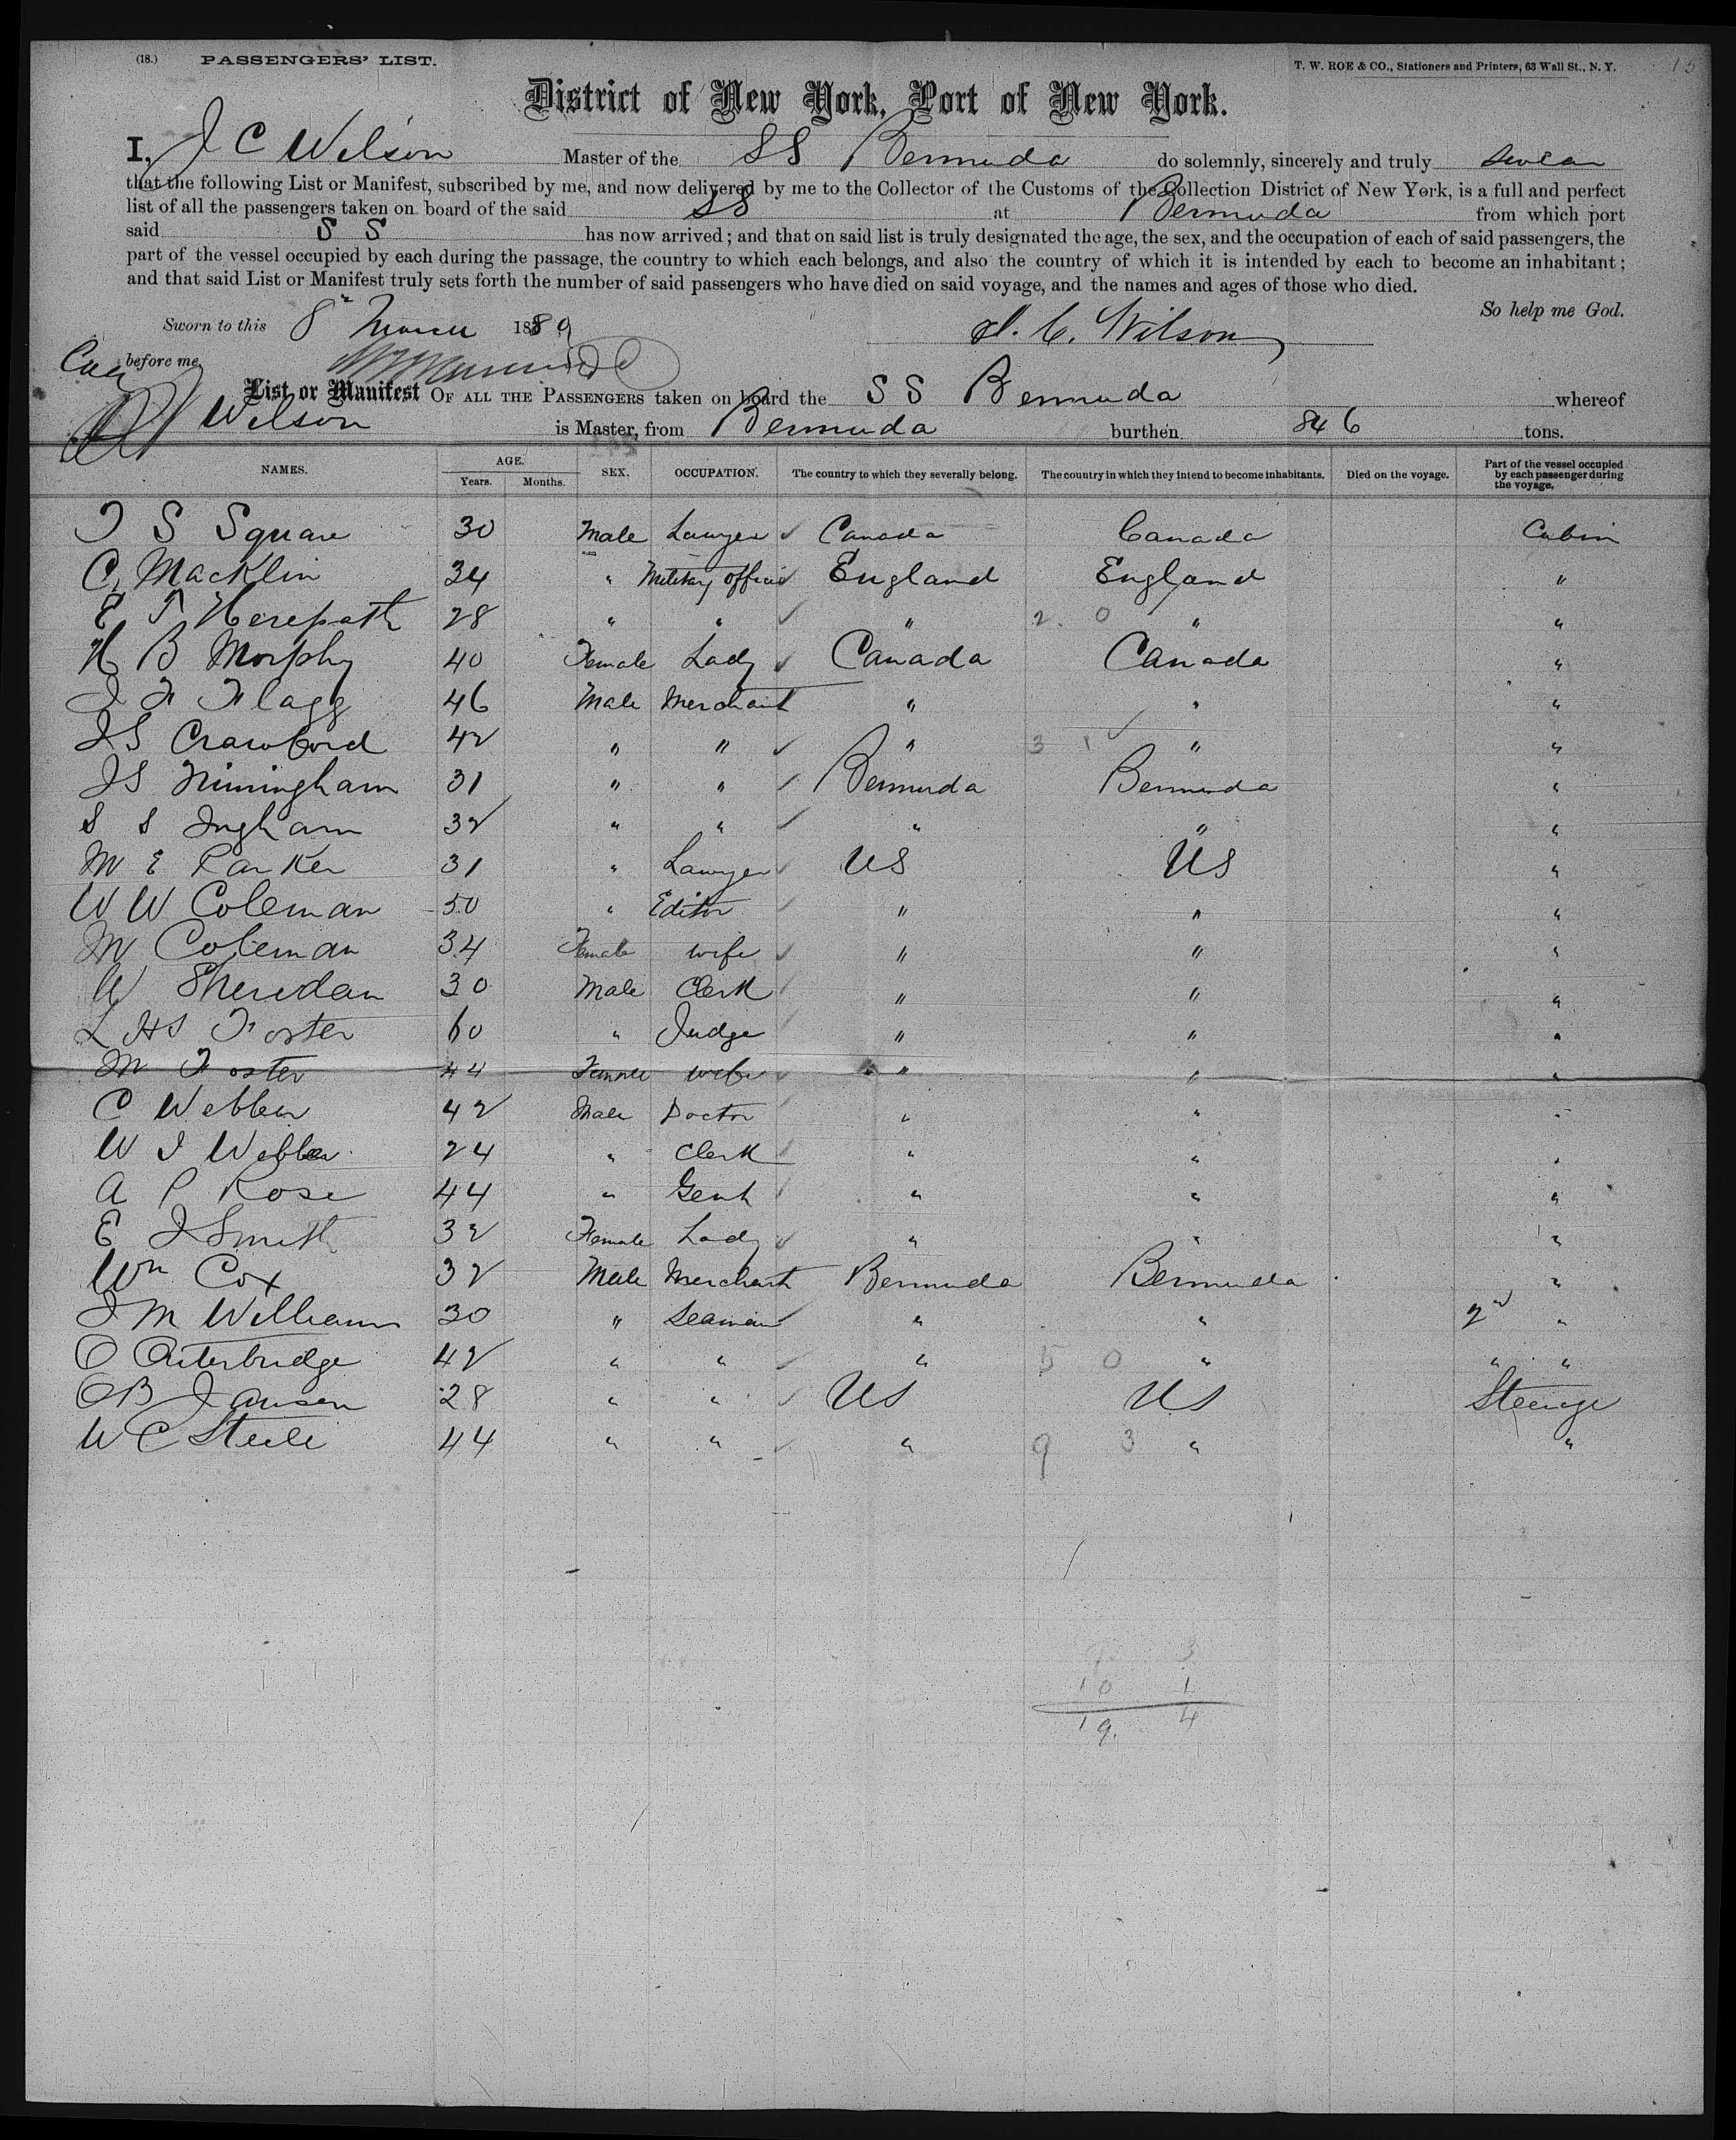 (18.) PASSENGERS' LIST. T. W. ROE & CO., Stationers and Printers, 63 Wall St., N. Y. 15
District of New York, Port of New York.
I, J C Wilson Master of the SS Bermuda do solemnly, sincerely and truly swear
that the following List or Manifest, subscribed by me, and now delivered by me to the Collector of the Customs of the Collection District of New York, is a full and perfect
list of all the passengers taken on board of the said SS at Bermuda from which port
said S S has now arrived; and that on said list is truly designated the age, the sex, and the occupation of each of said passengers, the
part of the vessel occupied by each during the passage, the country to which each belongs, and also the country of which it is intended by each to become an inhabitant;
and that said List or Manifest truly sets forth the number of said passengers who have died on said voyage, and the names and ages of those who died.
So help me God.
Sworn to this 8" March 1889 J. C. Wilson
before me
List or Manifest OF ALL THE PASSENGERS taken on board the S S Bermuda whereof
Wilson is Master, from Bermuda burthen 846 tons.
NAMES. AGE. Years. Months. SEX. OCCUPATION. The country to which they severally belong. The country in which they intend to become inhabitants. Died on the voyage. Part of the vessel occupied by each passenger during the voyage.
T S Square 30 Male Lawyer Canada Canada Cabin
C. Macklin 34 " Military officer England England "
E T Herepath 28 " " " 2. 0 " "
H B Morphy 40 Female Lady Canada Canada "
J F Flagg 46 Male Merchant " " "
J S Crawford 42 " " " 3 1 " "
JS 31 " " Bermuda Bermuda "
S S Ingham 32 " " " " "
M E Parker 31 " Lawyer US US "
W W Coleman 50 " Editor " " "
M Coleman 34 Female wife " " "
W Sheridan 30 Male Clerk " " "
L HS Foster 60 " Judge " " "
M Foster 44 Female wife " " "
C Webber 42 Male Doctor " " "
W I Webber 24 " Clerk " " "
A P Rose 44 " Gent " " "
E J Smith 32 Female Lady " " "
Wm Cox 32 Male Merchant Bermuda Bermuda "
J M Williams 30 " Seaman " " 2nd "
O Outerbridge 42 " " " 5 0 " " "
O B Jansen 28 " " US US Steerage
W C Steele 44 " " " 9 3 " "
9 3
10 1
19. 4